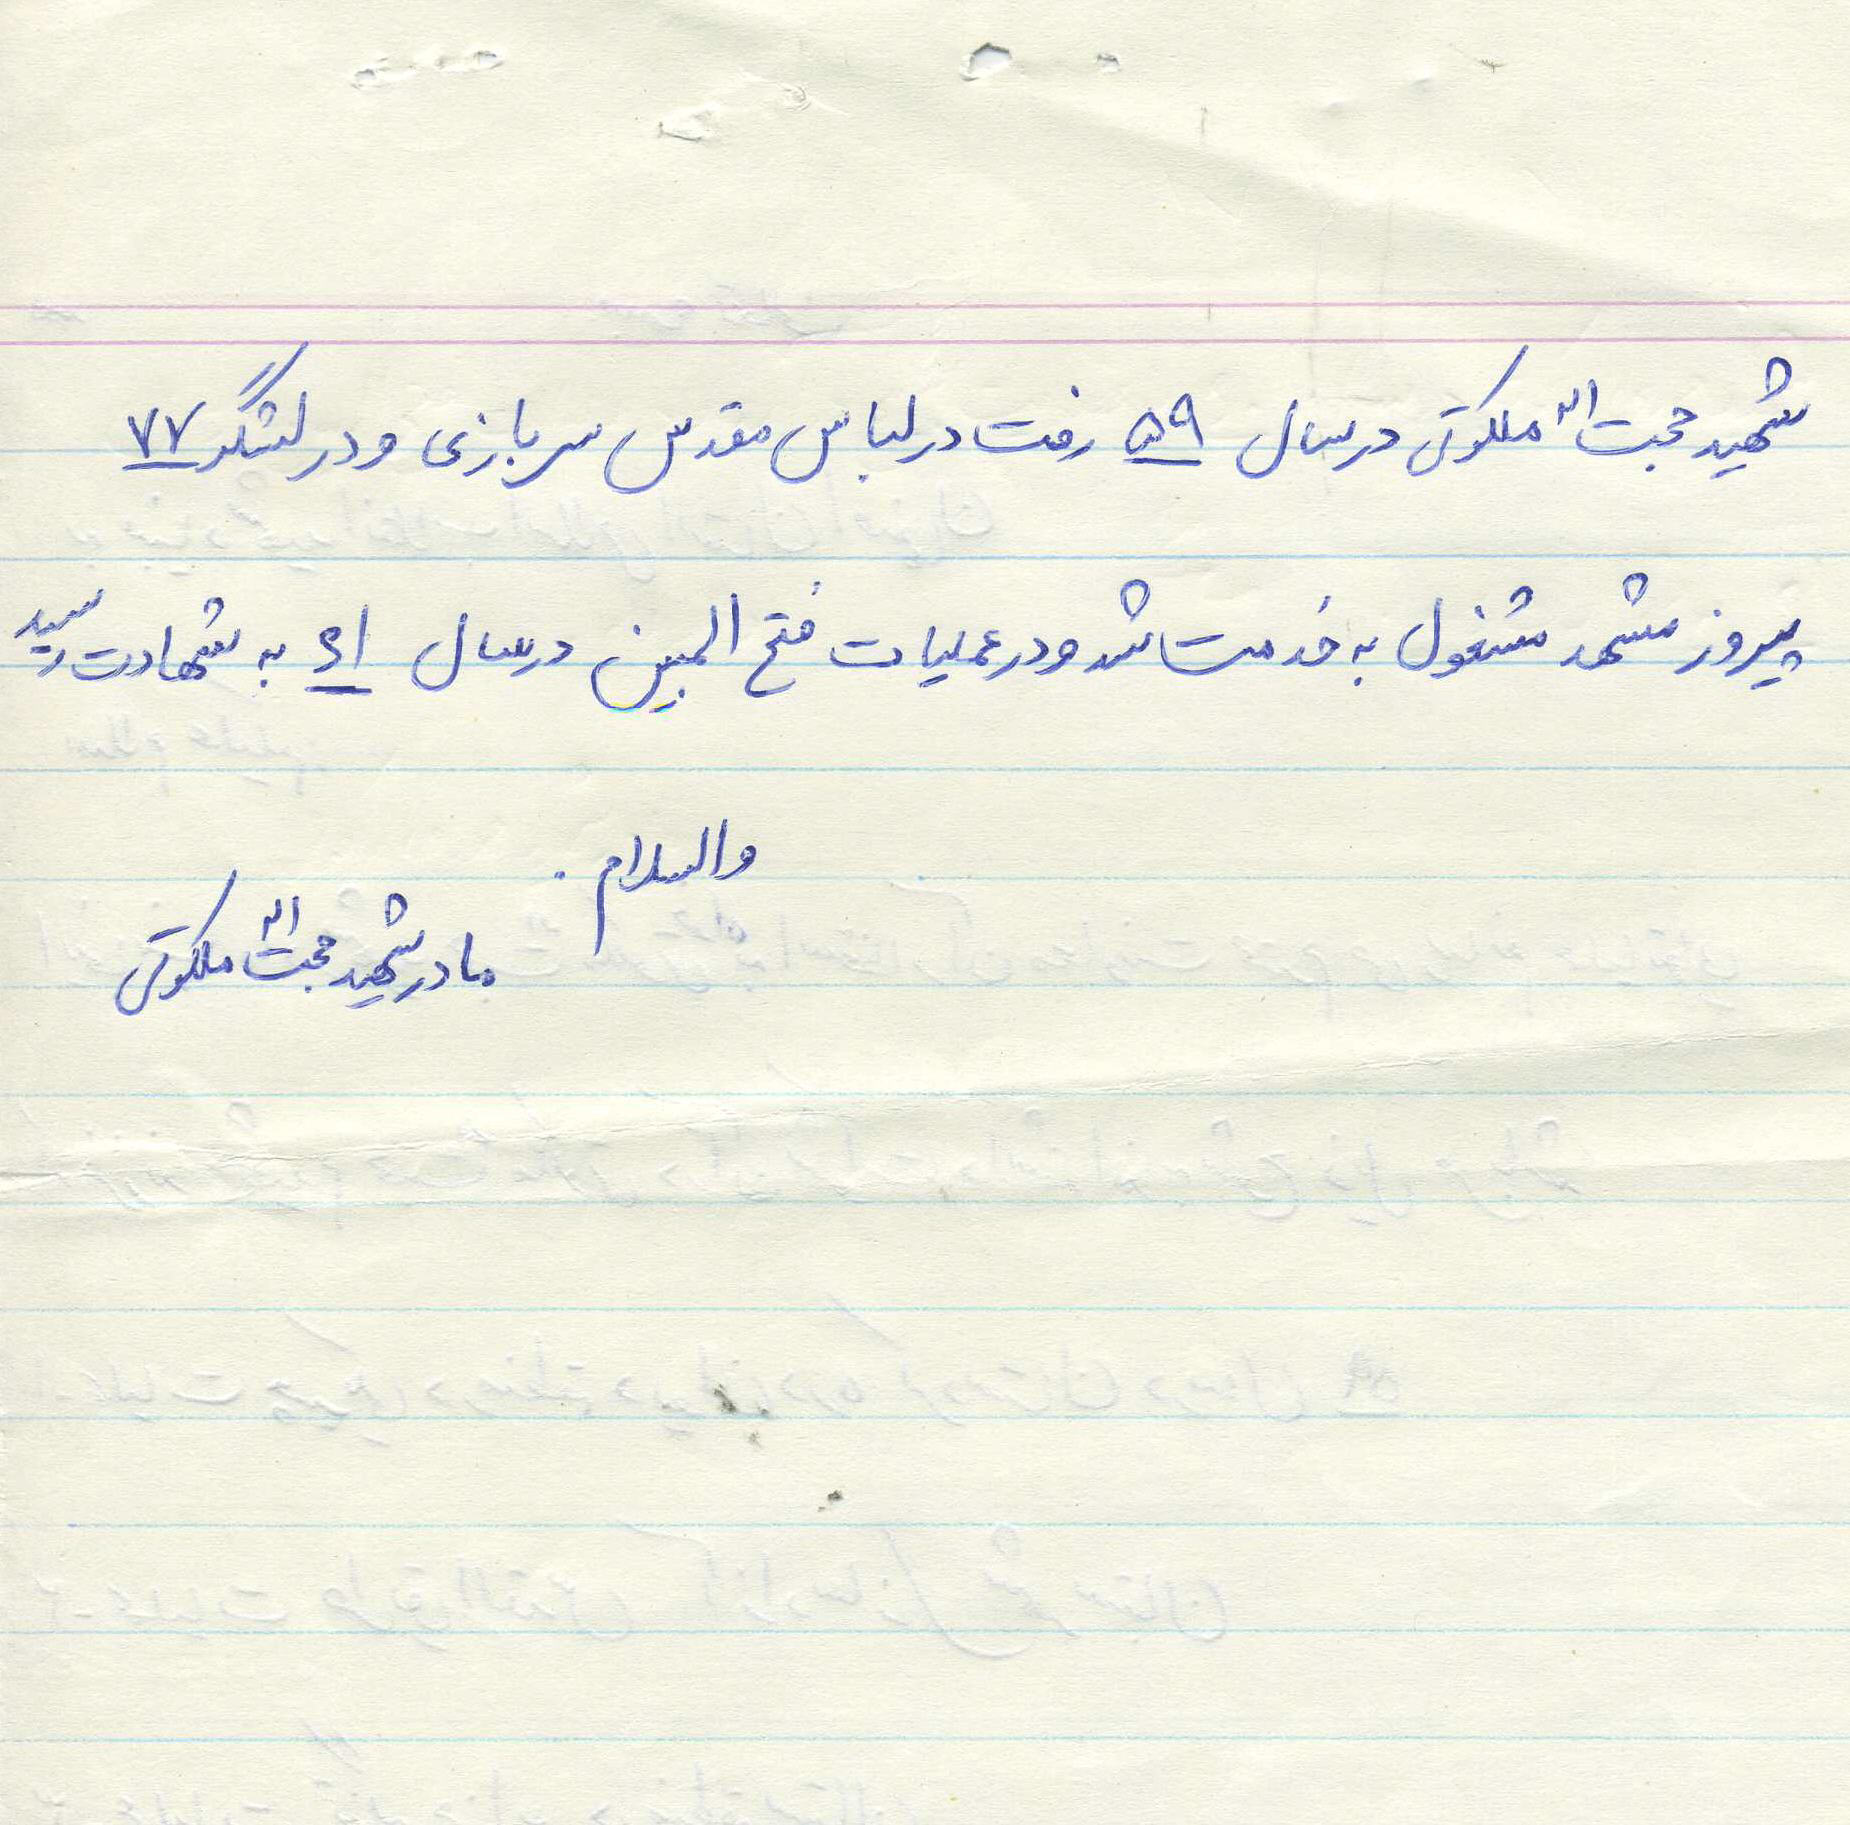 شهید حجت الله ملکوتی در سال ۵۹ رفت در لباس مقدس سربازی و در لشگر ۷۷
پیروز مشهد مشغول به خدمت شد و در عملیات فتح المبین در سال ۶۱ به شهادت رسید
والسلام.
مادر شهید حجت الله ملکوتی